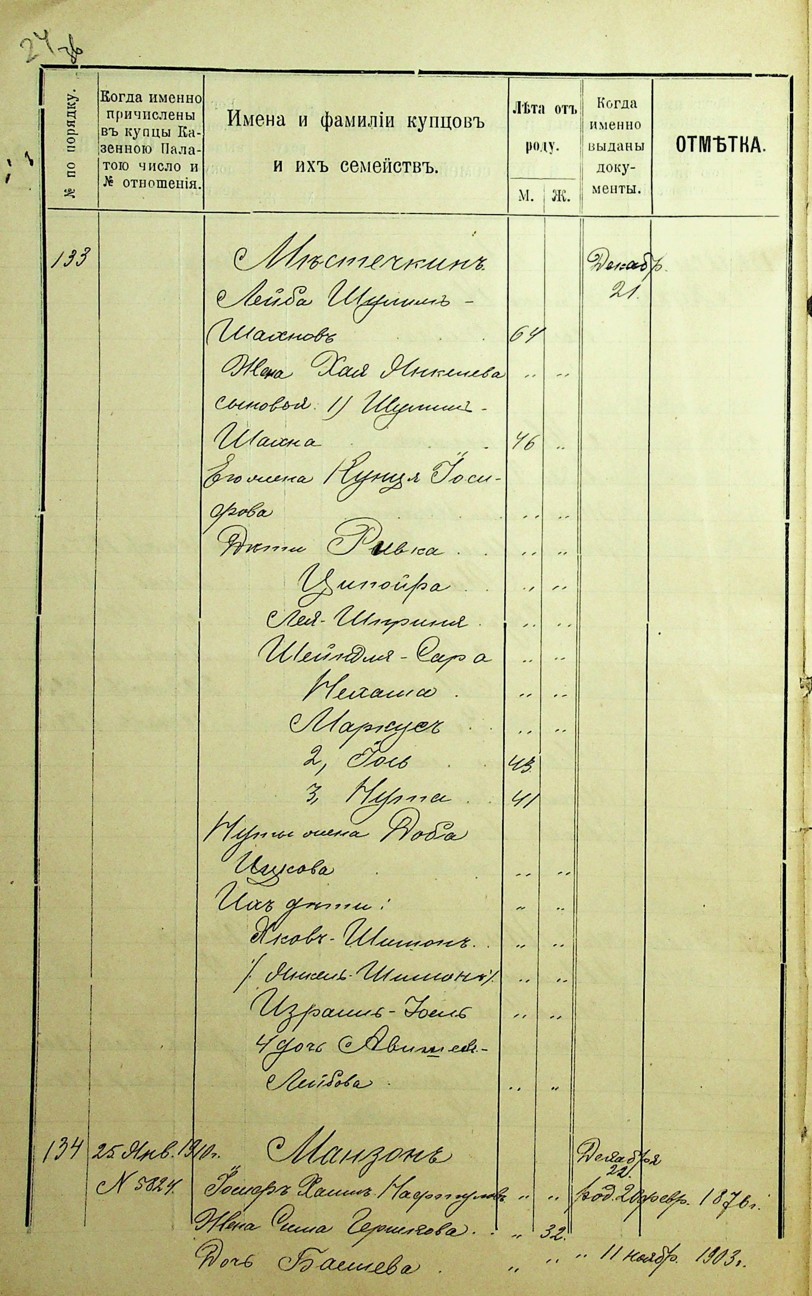 24 об
№ по порядку.
Когда именно причислены въ купцы Казенною Пала-
тою число и № отношенія.
Имена и фамиліи купцовъ
и ихъ семействъ.
Лѣта отъ
роду.
М. Ж.
Когда
именно
выданы
доку-
менты.
ОТМѢТКА.
133 Мѣстечкинъ Декабр.
Лейба Шулимъ- 21.
Шахновъ 64
Жена Хая Янкелева " "
сыновья 1) Шулимъ-
Шахна 46 "
Его жена Кунця Іоси-
фова " "
Дѣти Ривка " "
Ципойра " "
Лея-Шприня " "
Шейндля-Сара " "
Нехама " "
Маркусъ " "
2, Іось 43
3, Нута 41
Нуты жена Доба
Ицкова " "
Ихъ дѣти: " "
Яковъ-Шимонъ " "
/Янкель-Шимонъ/ " "
Израиль-Іось " "
4 дочь
Лейбова " "
134 25 Янв. 1910 г. Манзонъ Декабря
22.
N 5824. Іосифъ Хаимъ " " род. 20 февр. 1876 г.
Жена Сима Гершкова " 32.
Дочь Башева " " " 11 ноябр. 1903 г.